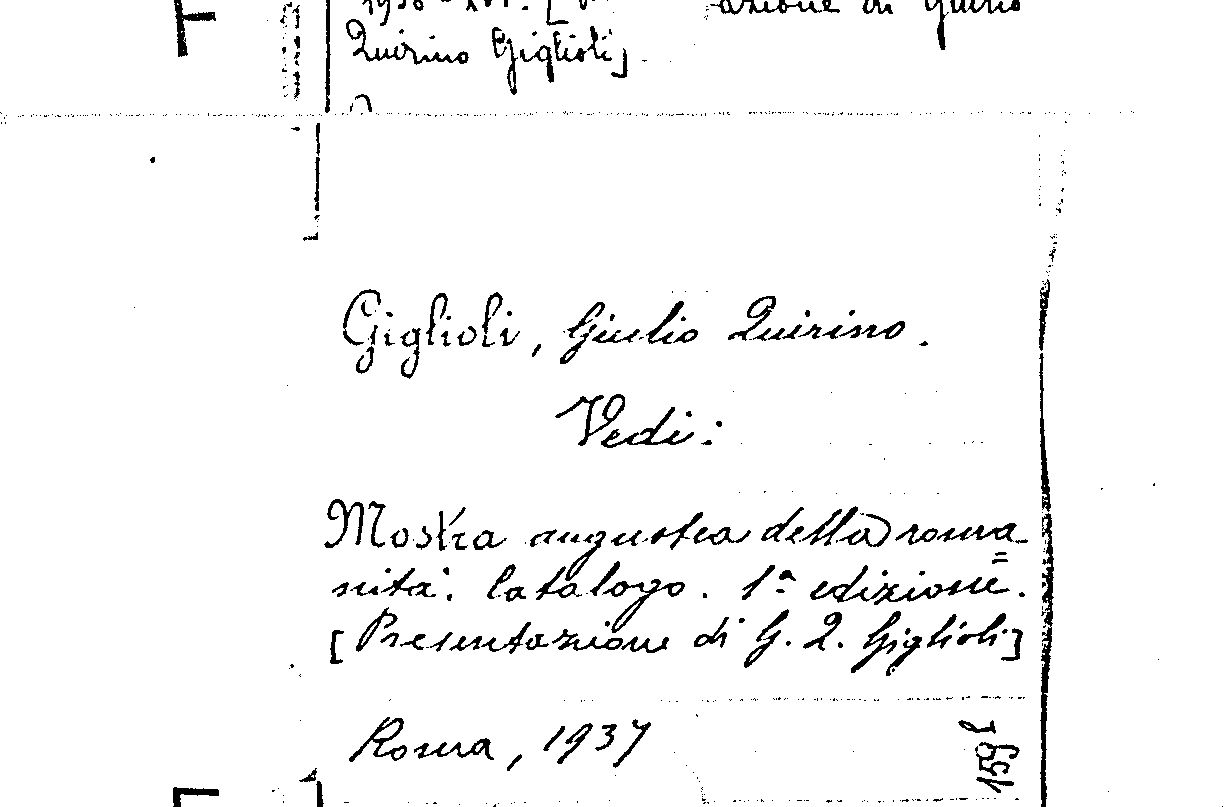 azione di Giulio
Quirino Giglioli]
Giglioli, Giulio Quirino.
Vedi:
Mostra augustea della roma=
nità. Catalogo. 1ª edizione.
[Presentazione di G. Q. Giglioli]
Roma, 1937
159 l